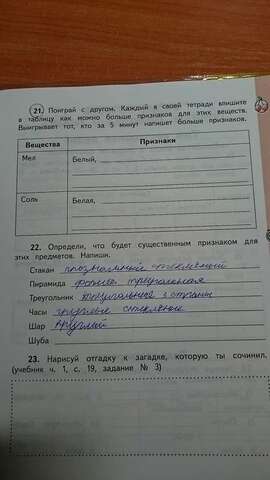 21. Поиграй с другом. Каждый в своей тетради впишите
в таблицу как можно больше признаков для этих веществ.
Выигрывает тот, кто за 5 минут напишет больше признаков.
Вещества Признаки
Мел Белый,
Соль Белая,
22. Определи, что будет существенным признаком для
этих предметов. Напиши.
Стакан стеклянный
Пирамида треугольная
Треугольник
Часы круглые
Шар круглый
Шуба
23. Нарисуй отгадку к загадке, которую ты сочинил.
(учебник ч. 1, с. 19, задание № 3)